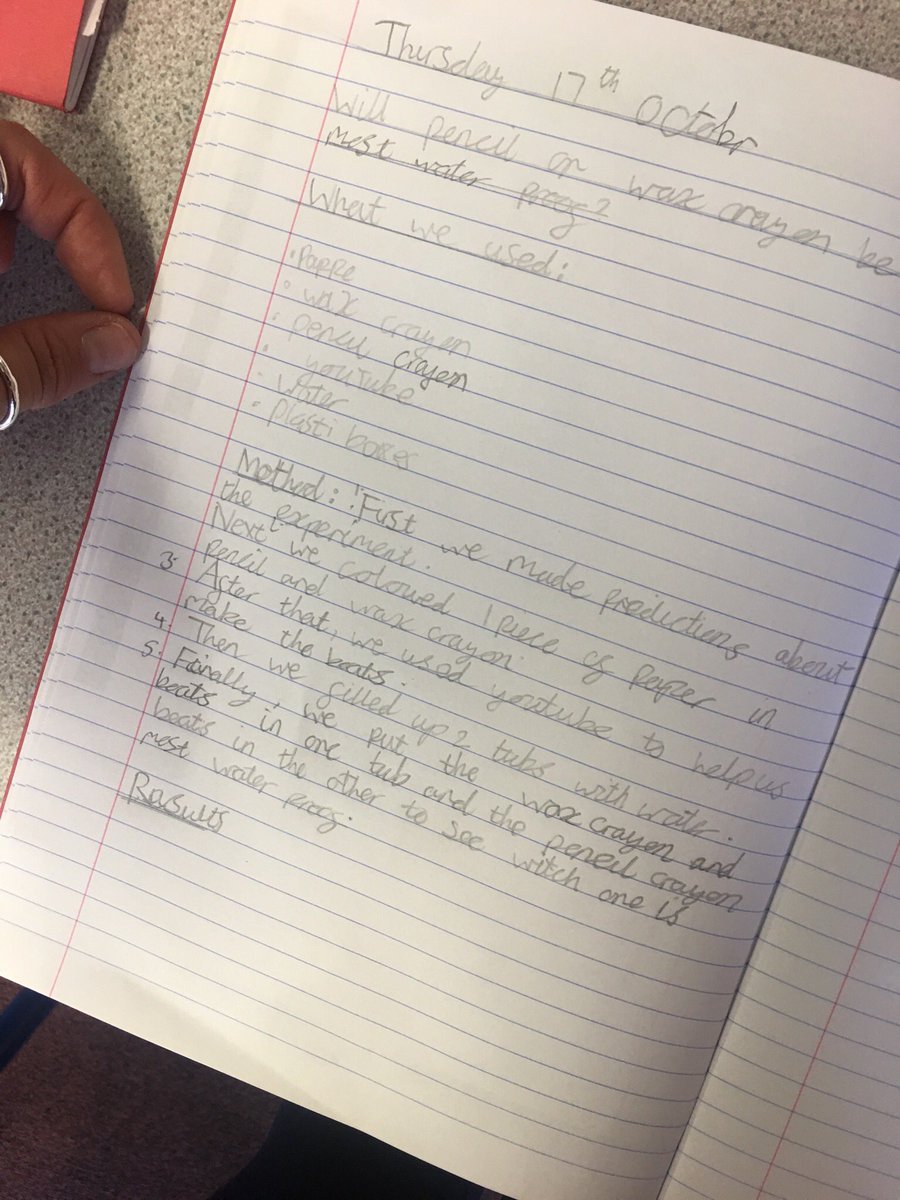 Thursday 17th October
Will pencil or wax crayon be
most water proof?
What we used:
• Pappe
• wax crayon
• pencil crayon
• youTube
• Water
• Plasti boxes
Method: First we made predictions about
the experiment.
Next we coloured 1 piece of paper in
pencil and wax crayon.
3. After that, we used youtube to help us
make the boats.
4. Then we filled up 2 tubs with water.
5. Fainally, we put the wax crayon and
boats in one tub and the pencil crayon
boats in the other to see witch one is
most water proof.
Rasults